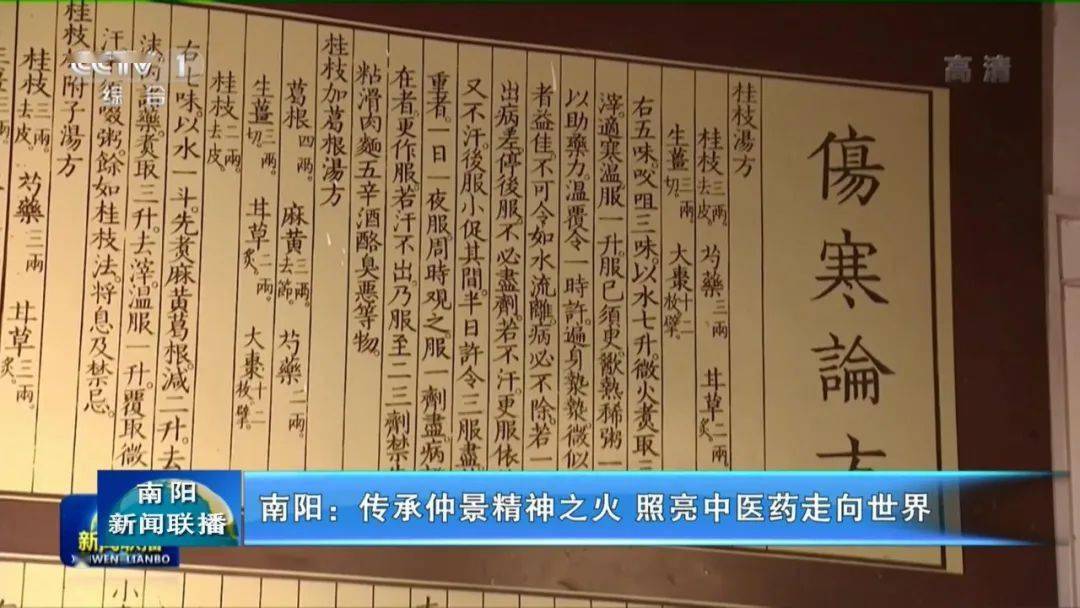 CCTV 1
综合
高清
傷寒論
桂枝湯方
桂枝三兩。去皮。 芍藥三兩 甘草二兩。炙。
生薑三兩。切。 大棗十二枚。擘。
右五味。㕮咀三味。以水七升。微火煮取三
滓。適寒溫服一升。服已須臾。歠熱稀粥一
以助藥力。溫覆令一時許。遍身漐漐。微似
者益佳。不可令如水流離。病必不除。若一
出病差。停後服。不必盡劑。若不汗。更服依
又不汗。後服小促其間。半日許令三服盡
重者。一日一夜服。周時观之。服一劑盡。病
在者。更作服。若汗不出。乃服至二三劑。禁生
粘滑肉麵五辛酒酪臭惡等物。
桂枝加葛根湯方
葛根四兩。 麻黃三兩。去節。 芍藥二兩。
生薑三兩。切。 甘草二兩。炙。 大棗十二枚。擘。
桂枝二兩。去皮。
右七味。以水一斗。先煮麻黃葛根。減二升。去
沫。內藥。煮取三升。去滓。溫服一升。覆取微
汗。啜粥。餘如桂枝法。將息及禁忌。
桂枝附子湯方
桂枝三兩。去皮。 芍藥三兩 甘草三兩。炙。
南阳
新闻联播
新闻联播
XINWEN LIANBO
南阳：传承仲景精神之火 照亮中医药走向世界